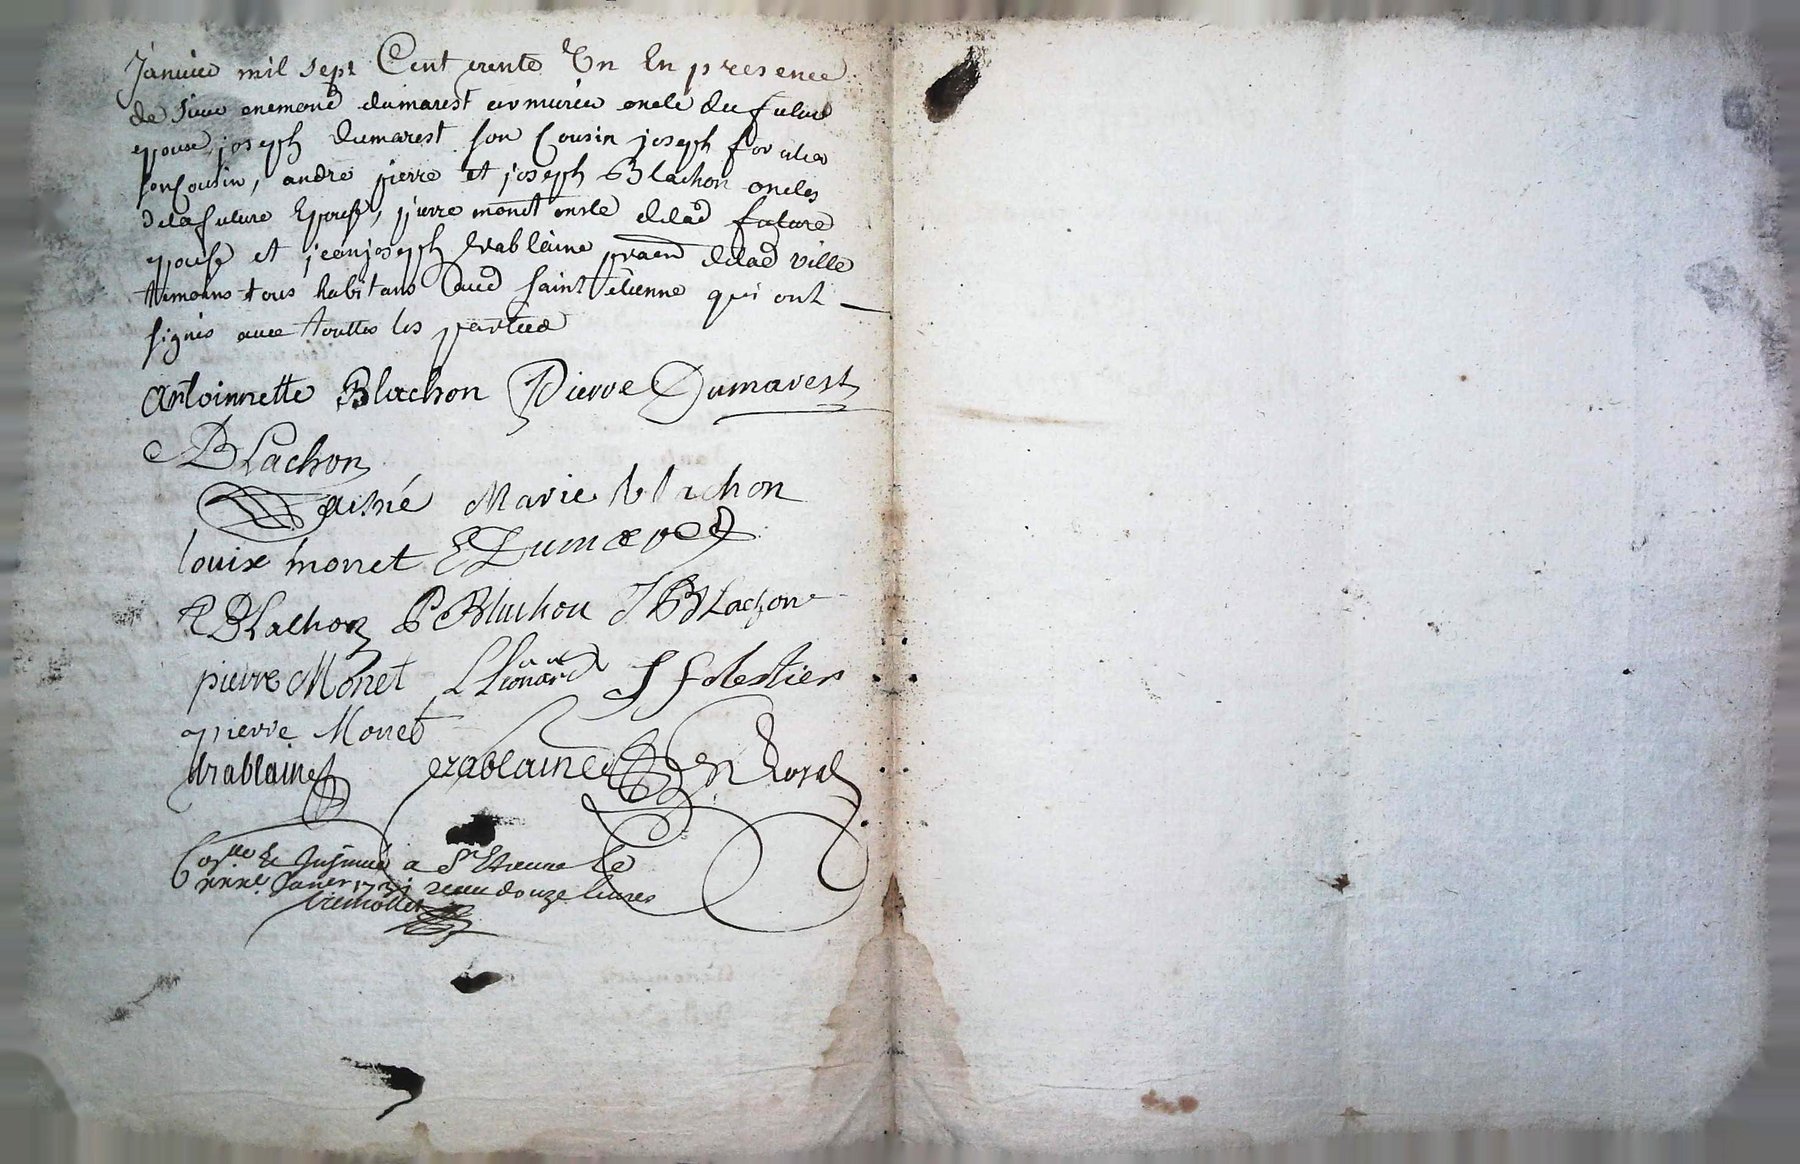 Janvier mil sept Cent trente Un En presence
de sieur enemond dumarest armurier oncle du futur
epoux, joseph dumarest son Cousin joseph forestier
son Cousin, andré pierre et joseph Blachon oncles
dela future Epouse, pierre monet oncle delad future
epouse et jean joseph Drablaine praen delad ville
temoins tous habitans aud saint étienne qui ont
signés avec touttes les parties
Antoinnette Blachon Pierre Dumarest
Blachon
aisné Marie blachon
louise monet E Dumarest
A Blachon P Blachon J Blachon
pierre Monet L Lionard J forestier
pierre Monet
drablaine drablaine
Con.lle & Insinué a St Etienne le
Janer 1731 receu douze livres